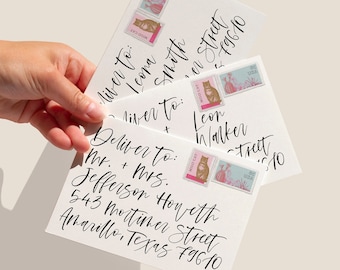 Deliver to:
Lena
Smith
Street
79610
Deliver to:
Leon
Walker
Street
79610
Deliver to:
Mr. + Mrs.
Jefferson Howeth
543 Mortimer Street
Amarillo, Texas 79610